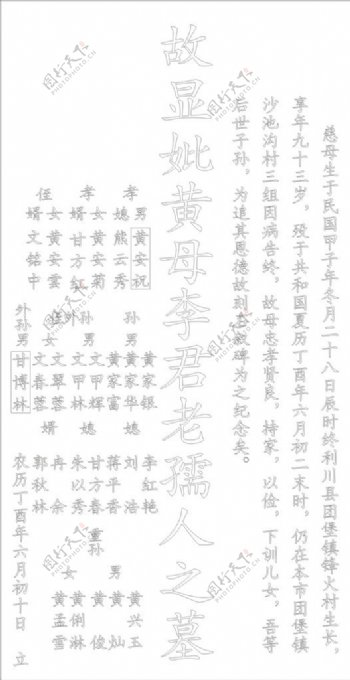 慈母生于民国甲子年冬月二十八日辰时终利川县团堡镇锋火村生长，
享年九十三岁，殁于共和国夏历丁酉年六月初二末时，仍在本市团堡镇
沙池沟村三组因病告终，故母忠孝贤良，持家，以俭，下训儿女，吾等
后世子孙，为追其恩德故刻
碑为之纪念矣。
故显妣黄母李君老孺人之墓
孝男 黄安祝
媳 熊云秀
孝女 黄安菊
婿 甘方红
侄女 黄安雲
婿 文铭中
孙男 黄家银 黄家华 黄家富
外孙男 文甲辉 文甲林
侄孙女 文翠蓉 文春林
外孙 甘博林
媳 李红艳 刘浩 蒋平香
媳 甘方春 朱以秀
婿 冉余 郭秋林
重孙
男 黄兴玉 黄灿 黄俊
女 黄俐淋 黄孟雪
农历丁酉年六月初十日 立
图行天下
PHOTOPHOTO.CN